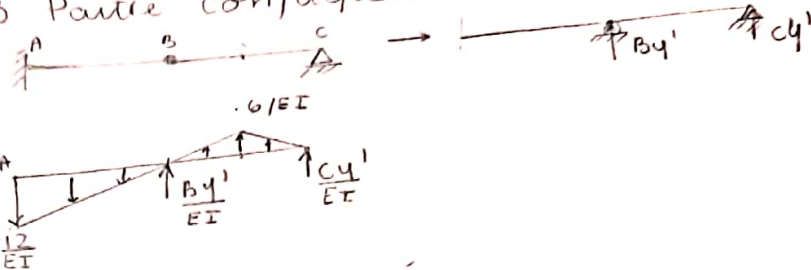 Poutre Conjug
A B C
By' Cy'
.6/EI
A
By'/EI Cy'/EI
12/EI